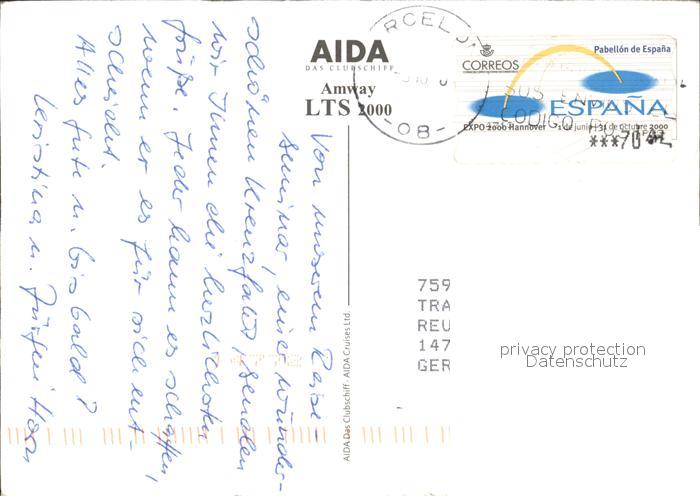 AIDA
DAS CLUBSCHIFF
Amway
LTS 2000
CORREOS
Pabellón de España
ESPAÑA
EXPO 2000 Hannover 1 de junio | 31 de octubre 2000
***70
08-
CODIGO
Von unserem Reise-
seminar, einer wunder-
schönen Kreuzfahrt, senden
wir Ihnen die herzlichsten
Grüße. Jeder kann es schaffen,
wenn er es für sich ent-
scheidet.
Alles Gute u. bis bald?
Kristina u. Jürgen Haas
AIDA Das Clubschiff · AIDA Cruises Ltd.
759
TRA
REU
147
GER
privacy protection
Datenschutz